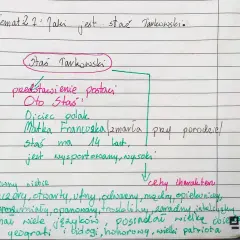 Temat 22: Jaki jest staś Tarkowski.
Staś Tarkowski
przedstawienie postaci
Oto Staś
Ojciec polak
Matka Francuska (zmarła przy porodzie)
staś ma 14 lat,
jest wysportowany, wysoki
cechy charakteru
otwarty, ufny, odważny, mężny, opiekuńczy,
opanowany, troskliwy,
zna wiele języków, posiadał wielką
geografii i biologi, honorowy, wielki patriota